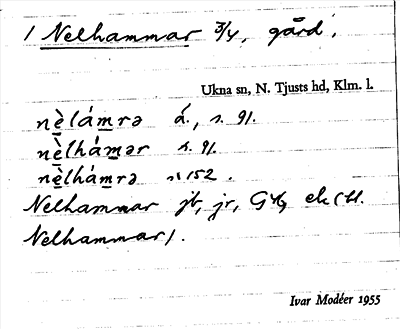 1 Nelhammar 3/4, gård,
Ukna sn, N. Tjusts hd, Klm. l.
nè̱lám̱rə á., s. 91.
nè̱lhám̱ər s. 91.
nè̱lhám̱rə s. 152.
Nelhammar jb, jr, GK,
Nelhammar/.
Ivar Modéer 1955